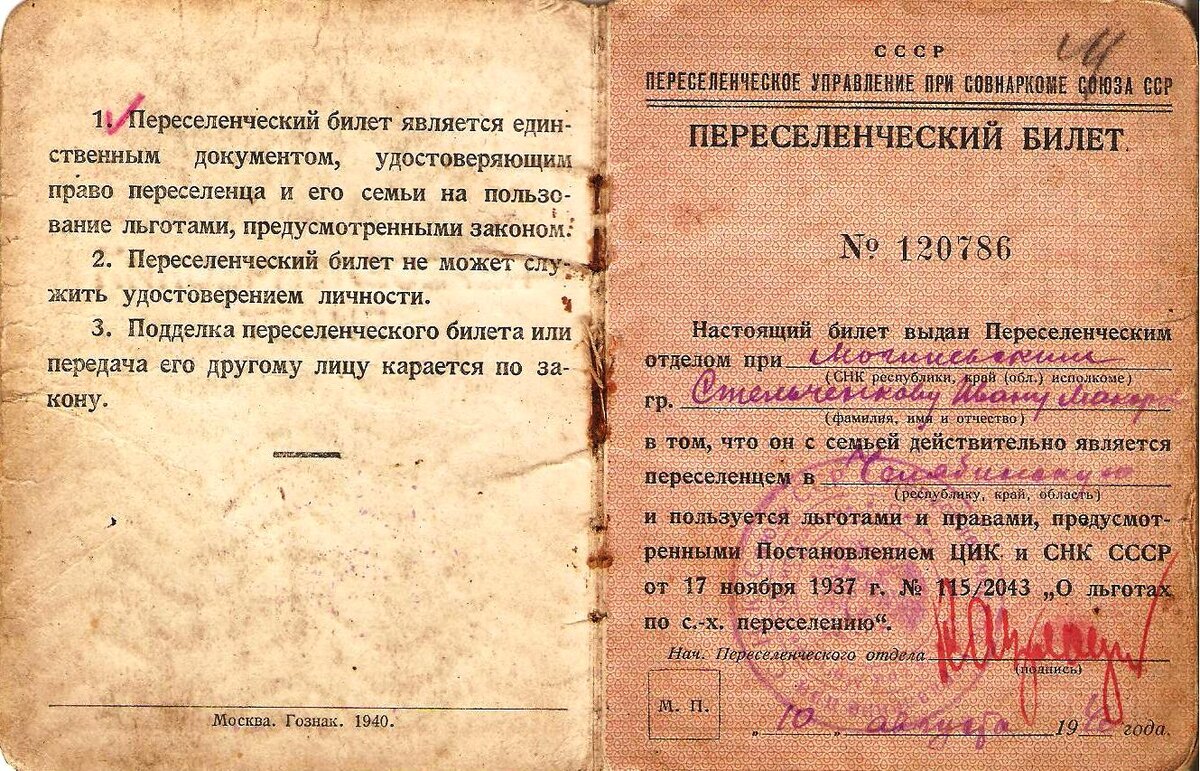 1. Переселенческий билет является един-
ственным документом, удостоверяющим
право переселенца и его семьи на пользо-
вание льготами, предусмотренными законом.
2. Переселенческий билет не может слу-
жить удостоверением личности.
3. Подделка переселенческого билета или
передача его другому лицу карается по за-
кону.
Москва. Гознак. 1940.
СССР
ПЕРЕСЕЛЕНЧЕСКОЕ УПРАВЛЕНИЕ ПРИ СОВНАРКОМЕ СОЮЗА ССР
ПЕРЕСЕЛЕНЧЕСКИЙ БИЛЕТ.
№ 120786
Настоящий билет выдан Переселенческим
отделом при Могилевским
(СНК республики, край (обл.) исполкоме)
гр. Стельченкову Ивану
(фамилия, имя и отчество)
в том, что он с семьей действительно является
переселенцем в Челябинскую
(республику, край, область)
и пользуется льготами и правами, предусмот-
ренными Постановлением ЦИК и СНК СССР
от 17 ноября 1937 г. № 115/2043 „О льготах
по с.-х. переселению“.
Нач. Переселенческого отдела
(подпись)
М. П.
„10„ августа 1940 года.